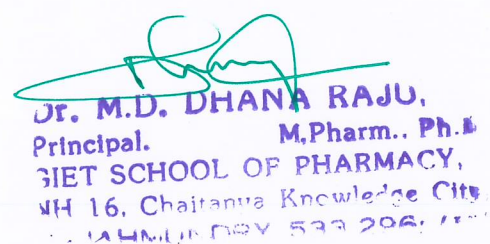 Dr. M.D. DHANA RAJU,
Principal. M.Pharm., Ph.D
GIET SCHOOL OF PHARMACY,
NH 16, Chaitanya Knowledge City,
RAJAHMUNDRY 533 296,